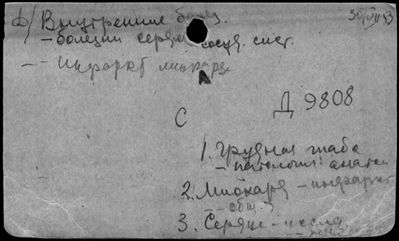 б/ Внутренние болез.
- болезни сердеч сосуд. сист.
-- инфаркт миокарда
С
Д 9808
1. Грудная жаба
- патология: анатом
2. Миокард - инфаркт
- общ.
3. Сердце -